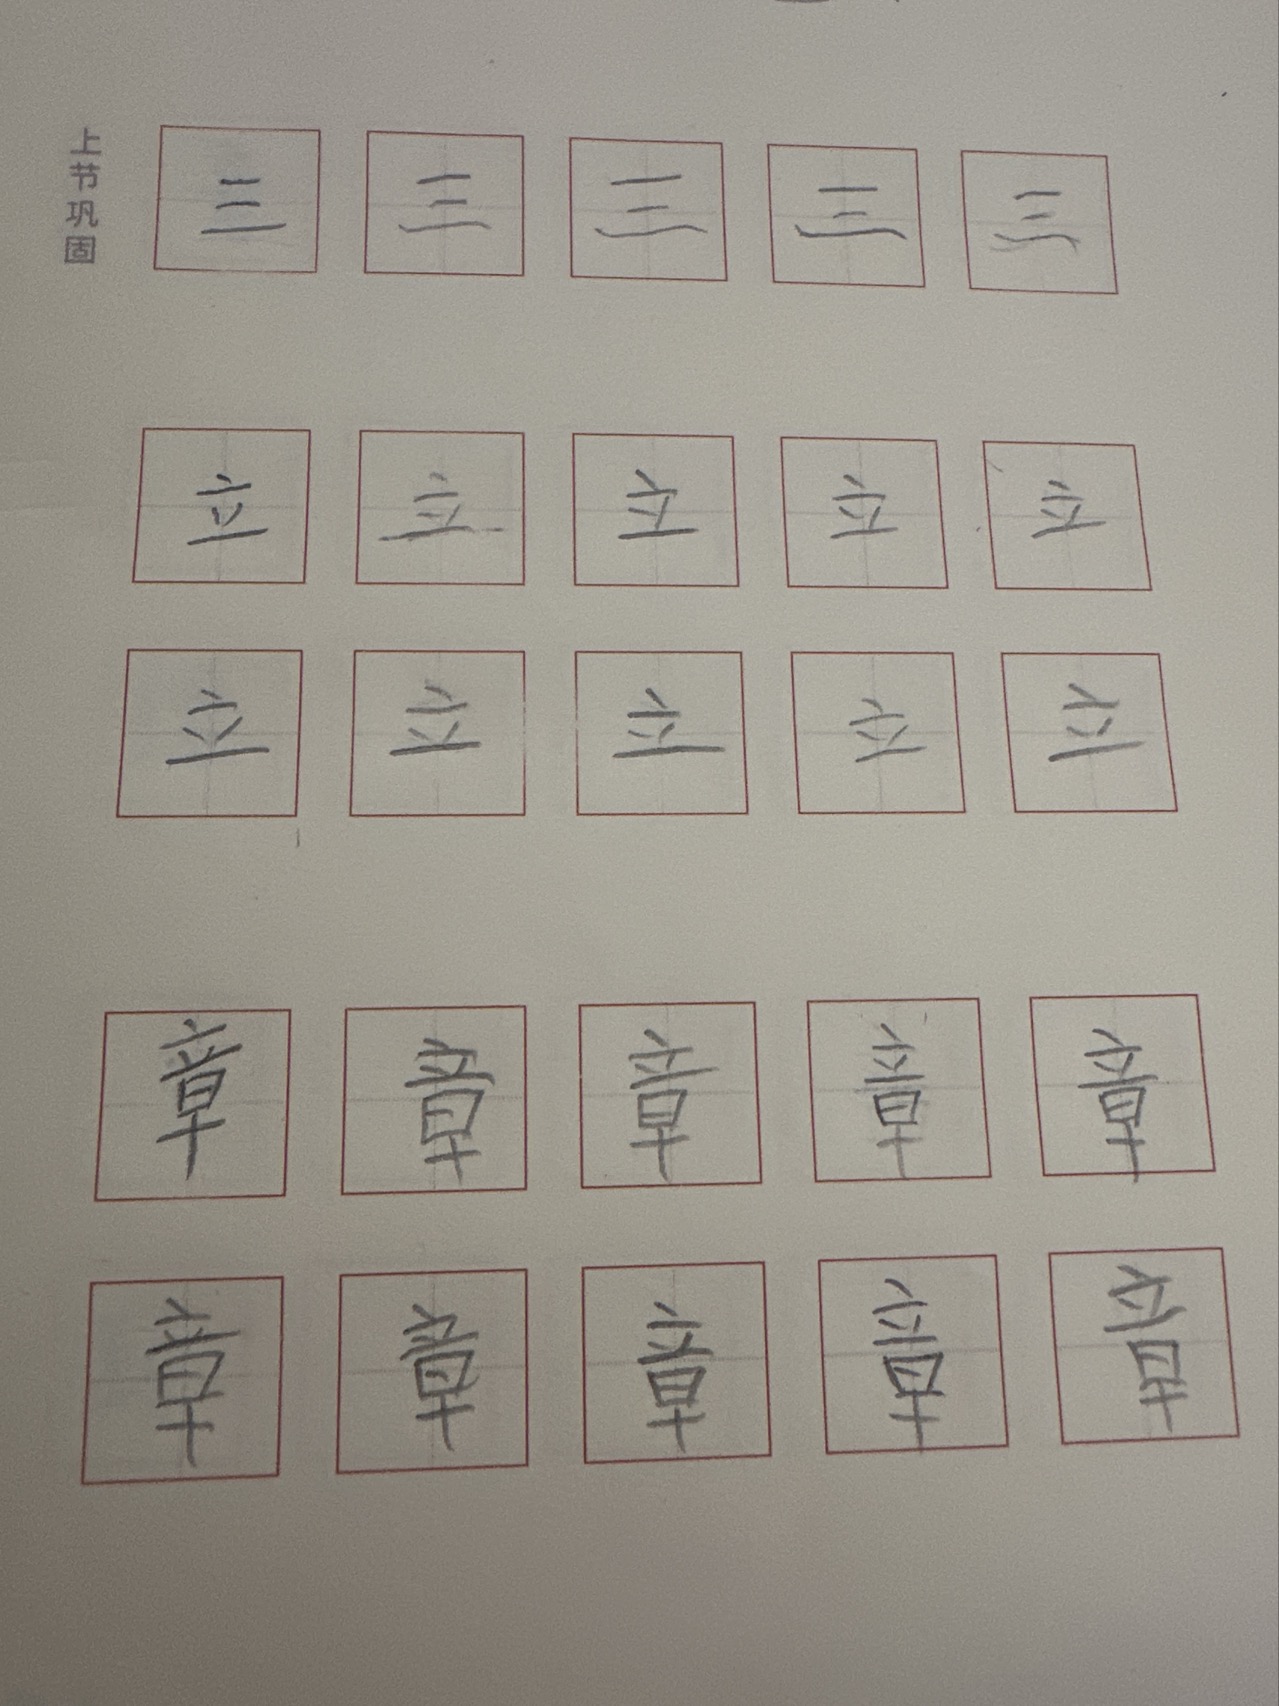 上节巩固
三 三 三 三 三
立 立 立 立 立
立 立 立 立 立
章 章 章 章 章
章 章 章 章 章